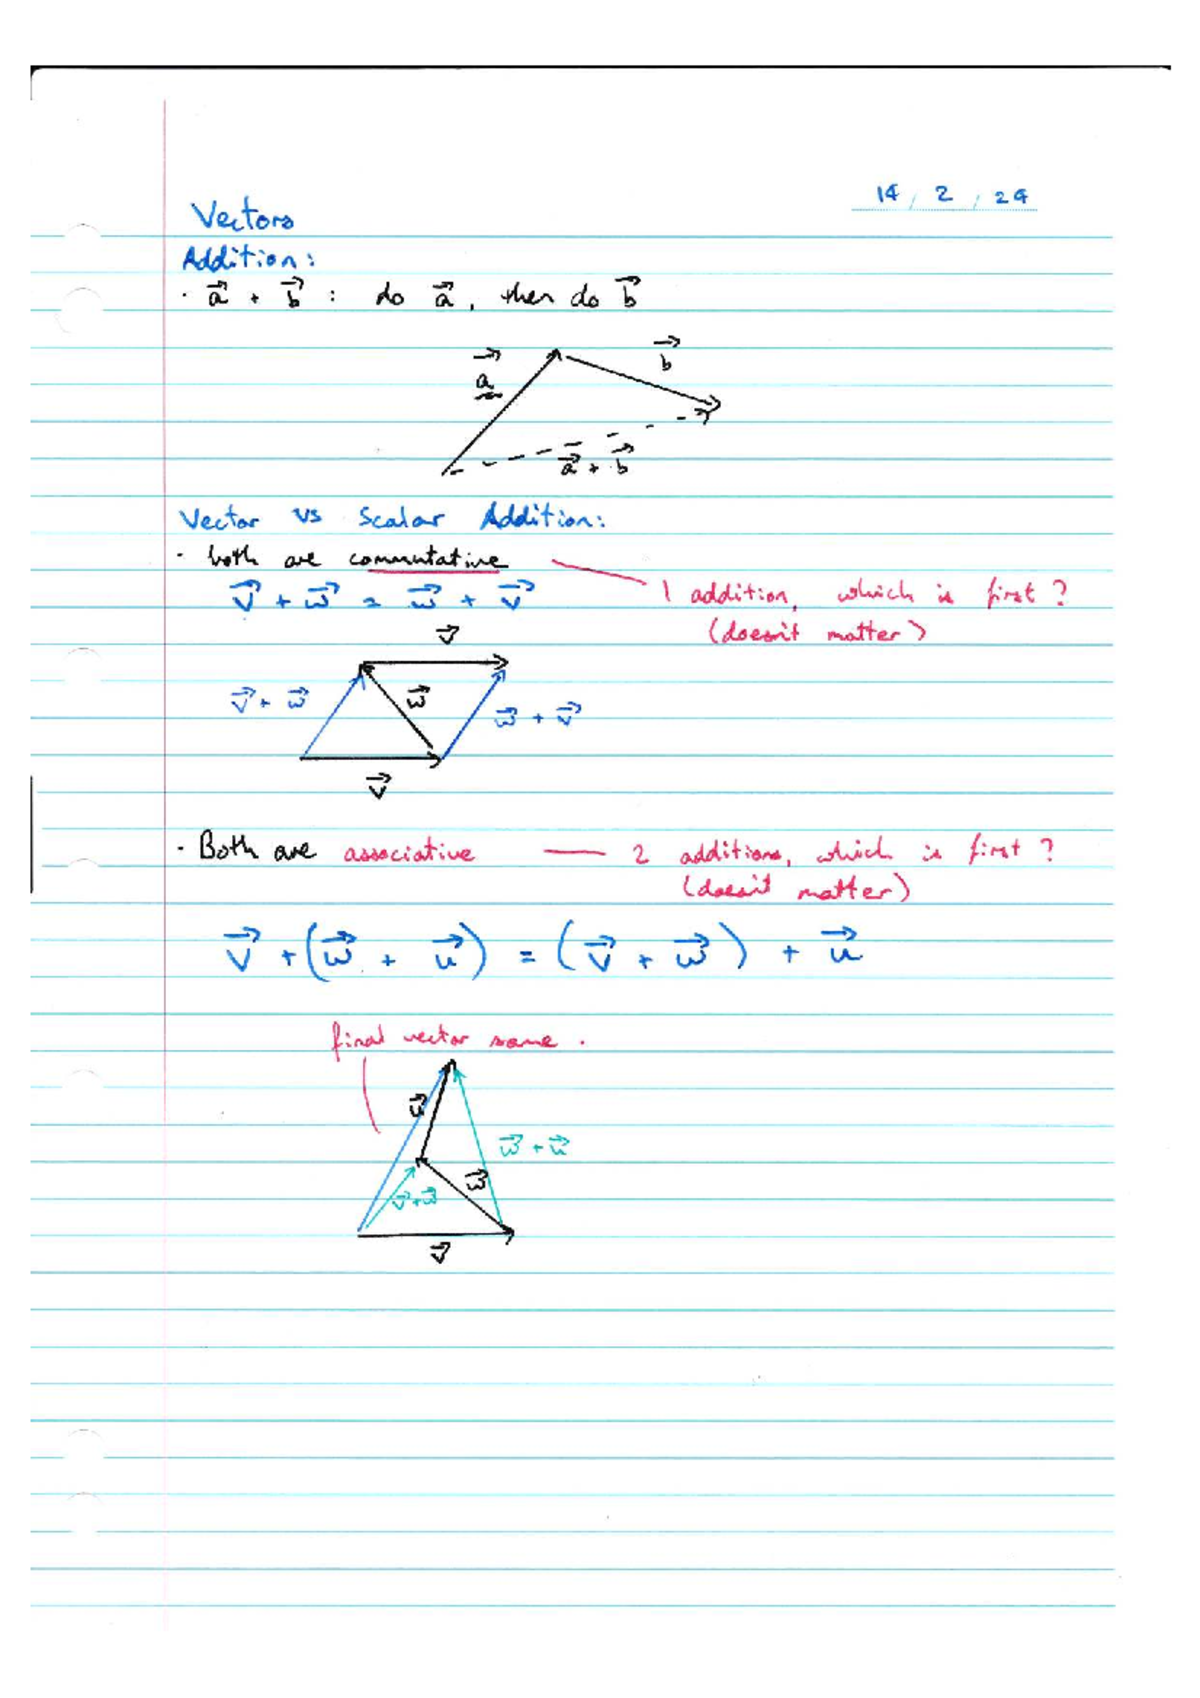 14 / 2 / 24
Vectors
Addition:
· a⃗ + b⃗ : do a⃗, then do b⃗
a⃗
b⃗
a⃗ + b⃗
Vector vs Scalar Addition:
· both are commutative
v⃗ + w⃗ = w⃗ + v⃗
1 addition, which is first?
(doesn't matter)
v⃗
v⃗ + w⃗
w⃗
w⃗ + v⃗
v⃗
· Both are associative — 2 additions, which is first?
(doesn't matter)
v⃗ + (w⃗ + u⃗) = (v⃗ + w⃗) + u⃗
final vector same.
u⃗
w⃗ + u⃗
w⃗
v⃗ + w⃗
v⃗